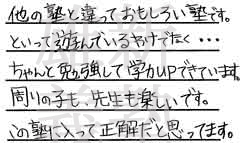 他の塾と違っておもしろい塾です。
といって遊んでいるわけでなく・・・
ちゃんと勉強して学力UPできています。
周りの子も、先生も楽しいです。
この塾に入って正解だと思ってます。